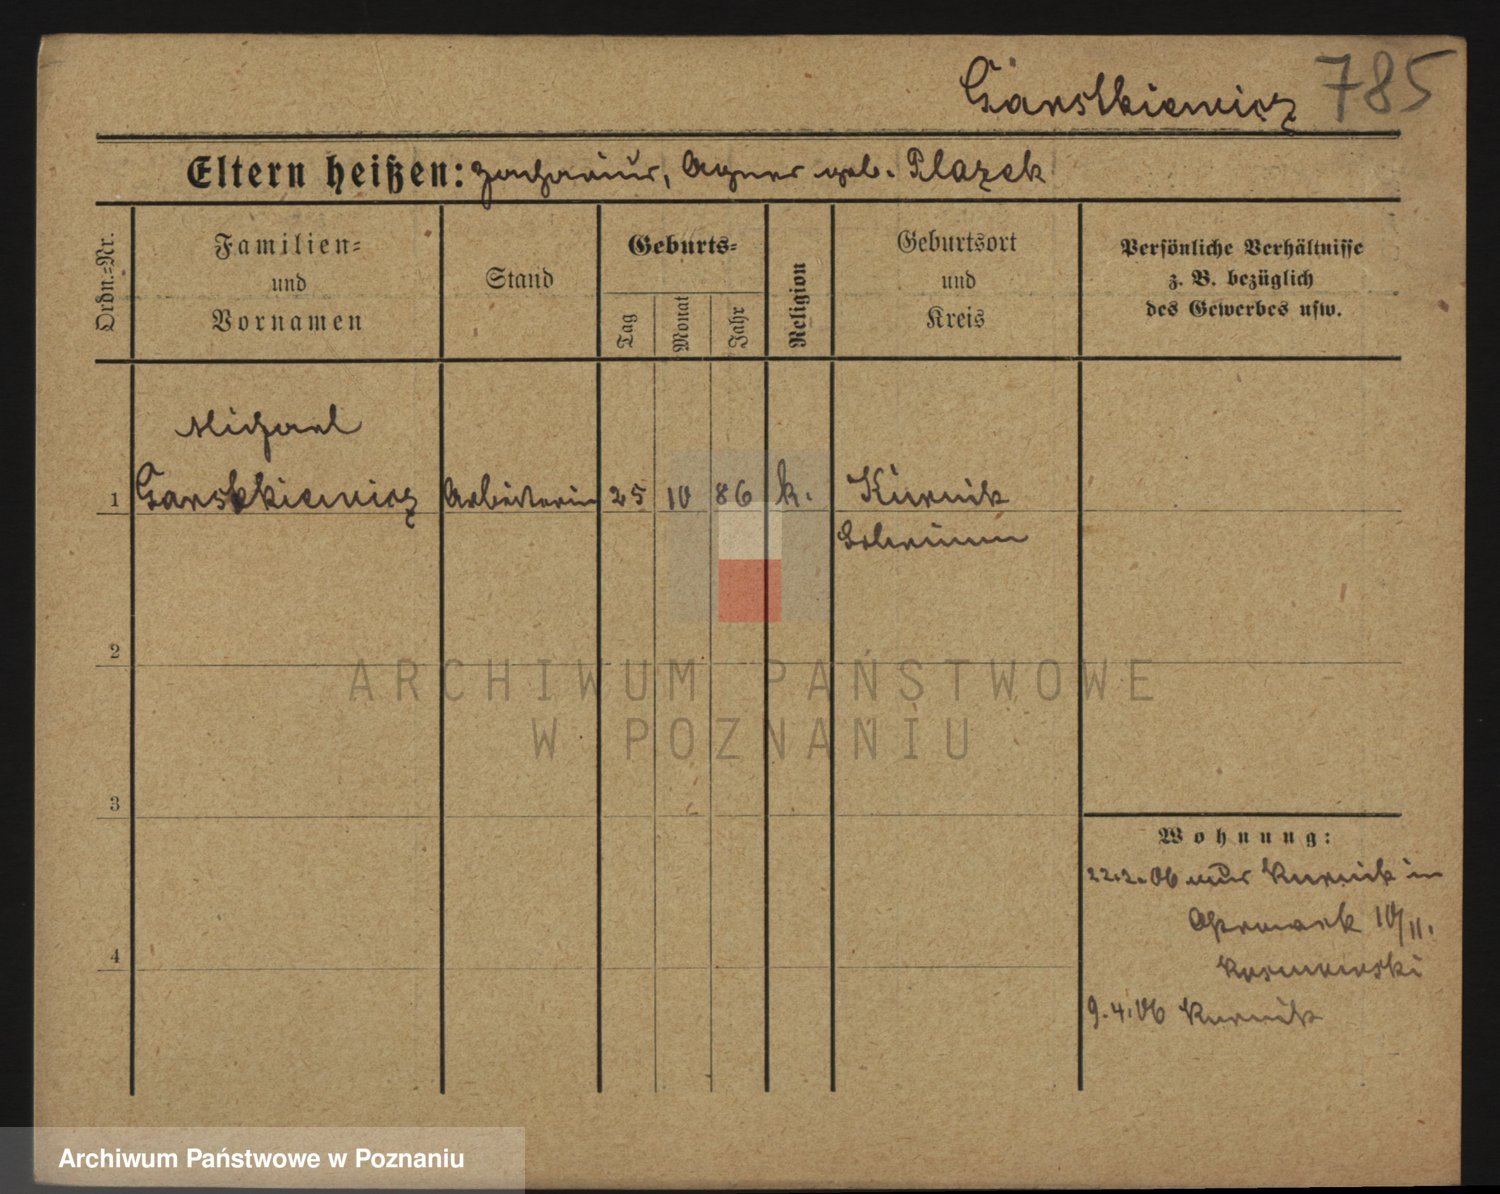 Garstkiewicz 785
Eltern heißen: Zacharius, Agnes geb. Plazek
Ordn.=Nr.
Familien=
und
Vornamen
Stand
Geburts=
Tag
Monat
Jahr
Religion
Geburtsort
und
Kreis
Persönliche Verhältnisse
z. B. bezüglich
des Gewerbes usw.
Michael
1 Garstkiewicz Arbeiterin 25 10 86 k. Kurnik
Schrimm
2
3
4
Wohnung:
22.2.06 aus Kurnik in
10/11.
9.4.06 Kurnik
ARCHIWUM PAŃSTWOWE
W POZNANIU
Archiwum Państwowe w Poznaniu